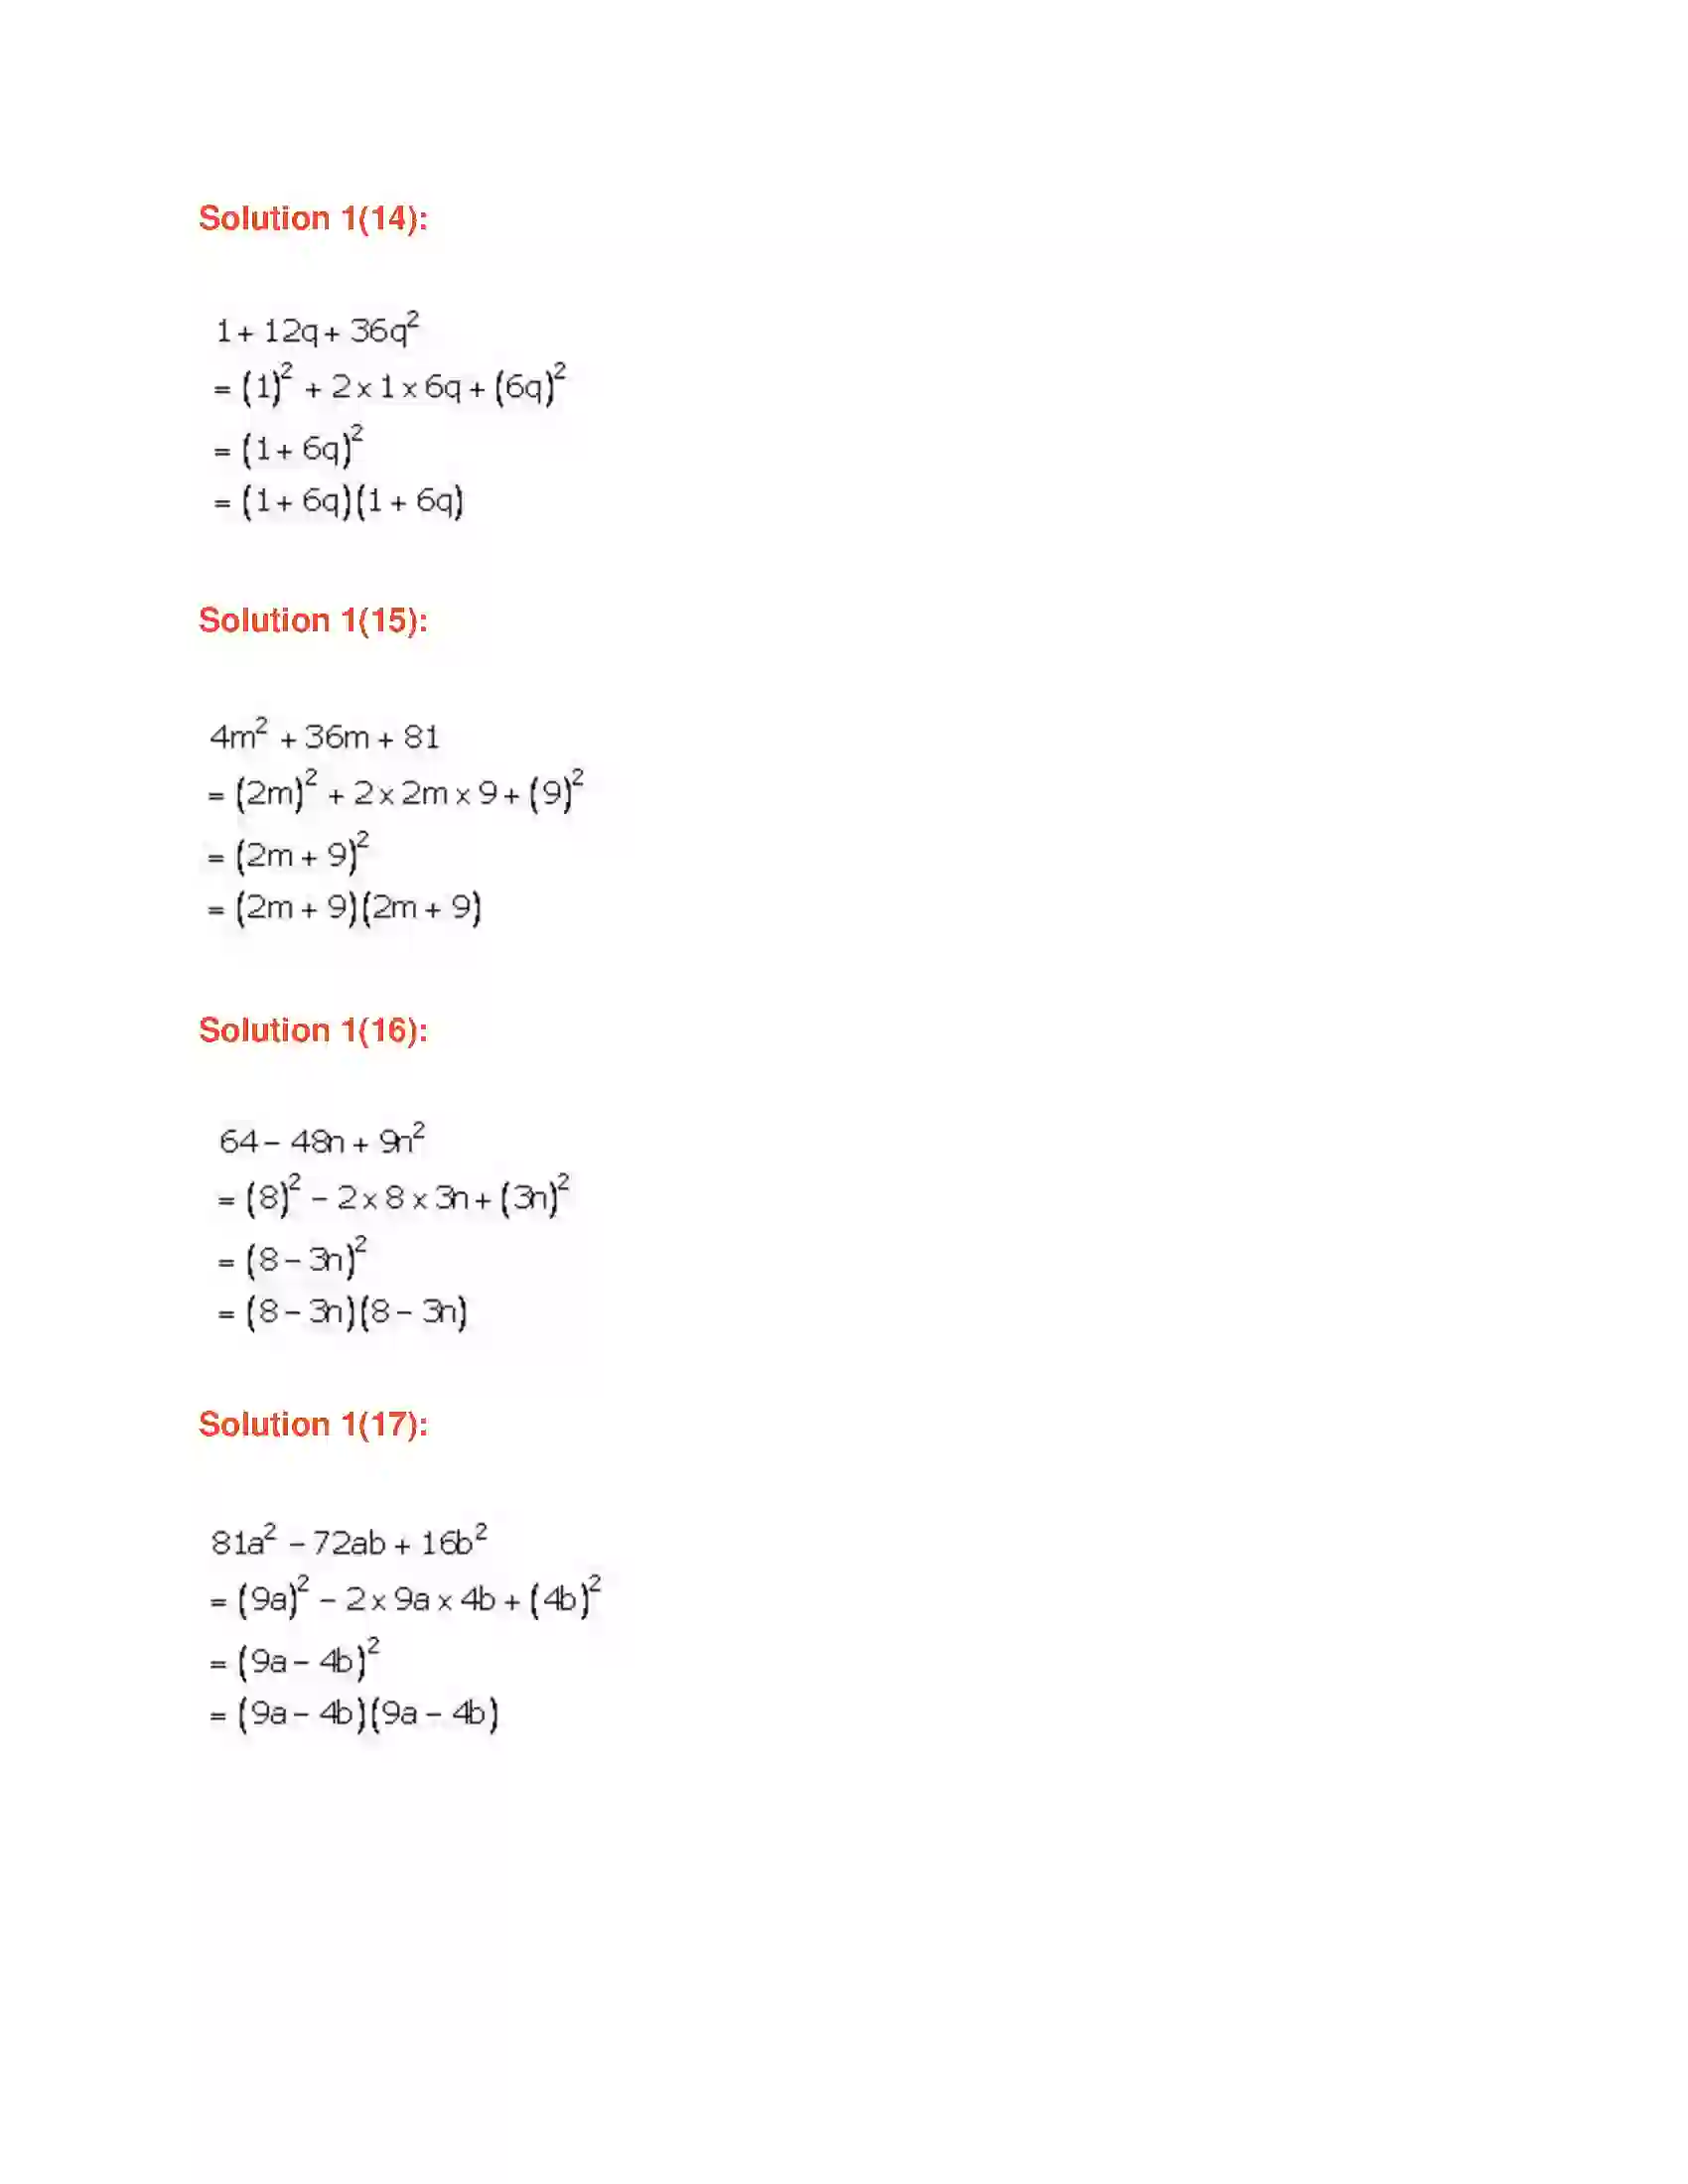 Solution 1(14):
1 + 12q + 36q²
= (1)² + 2 × 1 × 6q + (6q)²
= (1 + 6q)²
= (1 + 6q)(1 + 6q)
Solution 1(15):
4m² + 36m + 81
= (2m)² + 2 × 2m × 9 + (9)²
= (2m + 9)²
= (2m + 9)(2m + 9)
Solution 1(16):
64 − 48n + 9n²
= (8)² − 2 × 8 × 3n + (3n)²
= (8 − 3n)²
= (8 − 3n)(8 − 3n)
Solution 1(17):
81a² − 72ab + 16b²
= (9a)² − 2 × 9a × 4b + (4b)²
= (9a − 4b)²
= (9a − 4b)(9a − 4b)